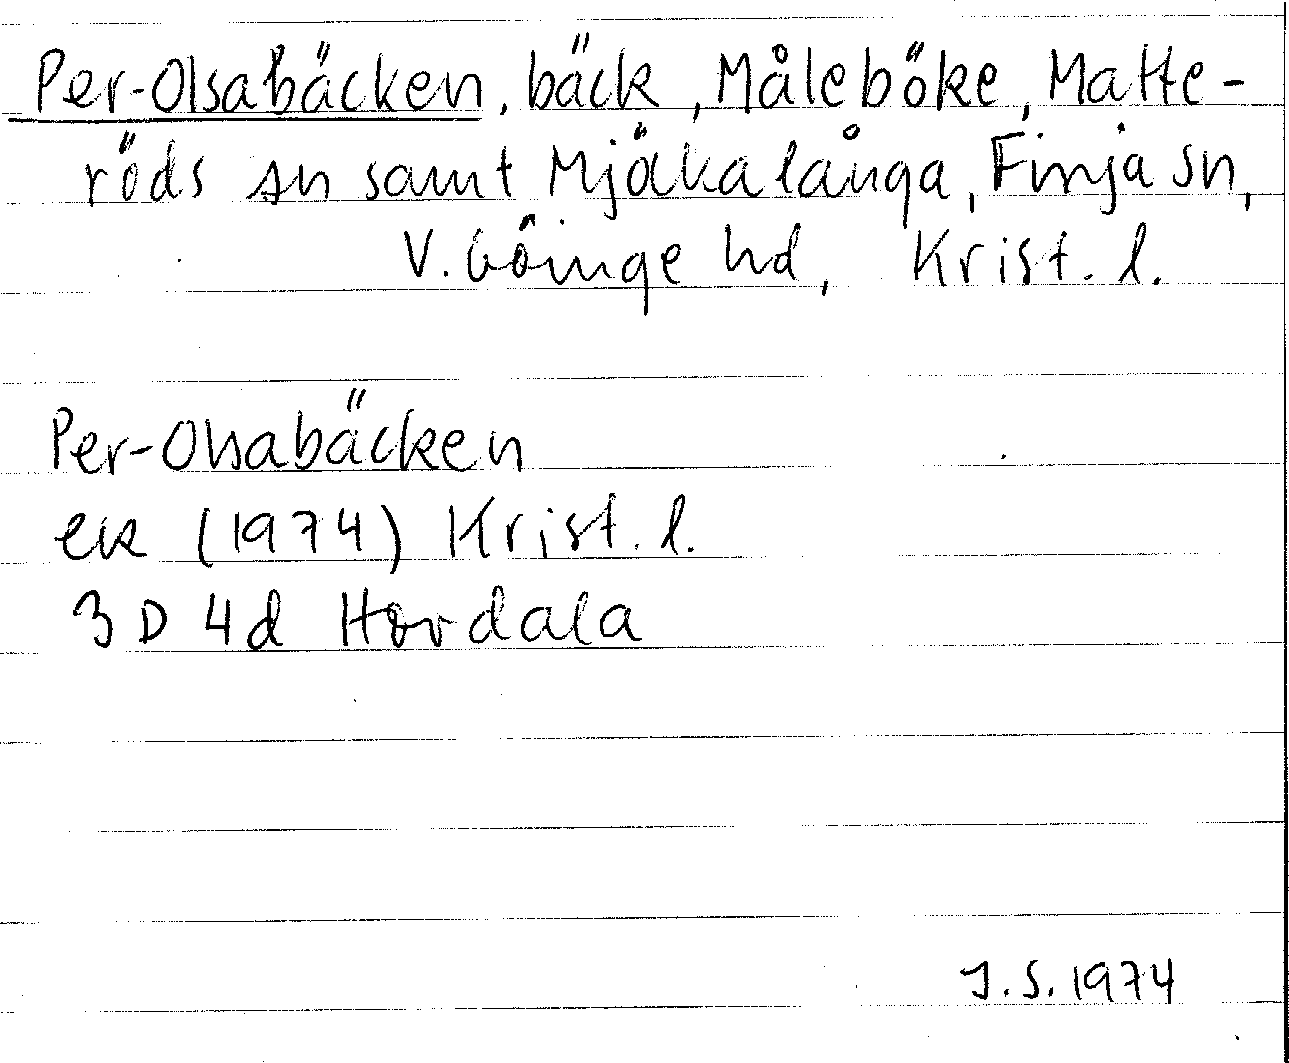 Per-Olsabäcken, bäck, Måleböke, Matte-
röds sn samt Mjölkalånga, Finja sn,
V. Göinge hd, Krist. l.
Per-Olsabäcken
ek (1974) Krist. l.
3 D 4d Hovdala
J.S. 1974